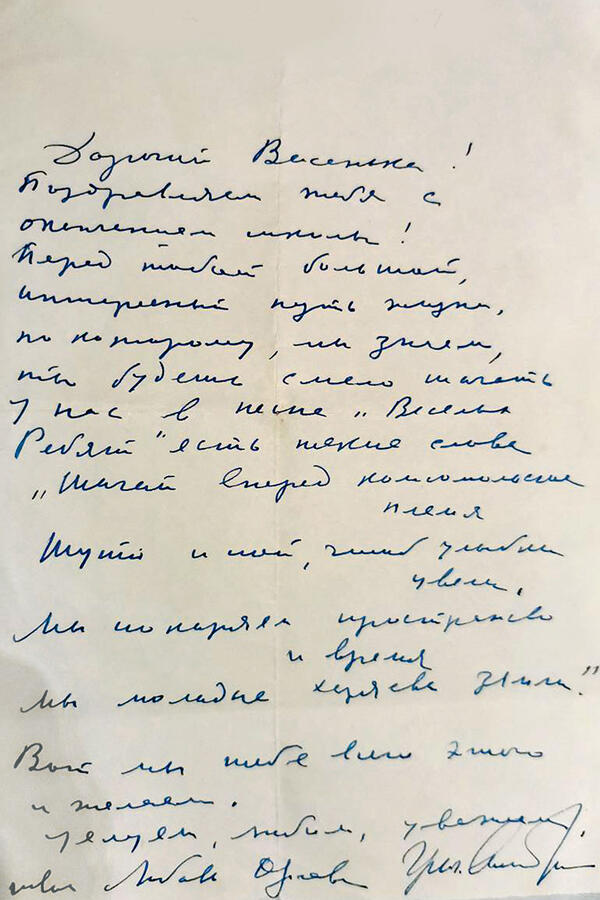 Дорогой Васенька!
Поздравляем тебя с
окончанием школы!
Перед тобой большой,
интересный путь жизни,
по которому, мы знаем,
ты будешь смело шагать
У нас в песне „Веселых
Ребят" есть такие слова
„Шагай вперед комсомольское
племя
Шути и пой, чтоб улыбки
цвели,
Мы покоряем пространство
и время
Мы молодые хозяева земли."
Вот мы тебе всего этого
и желаем.
Целуем, любим, уважаем,
твои Любовь Орлова Григ.